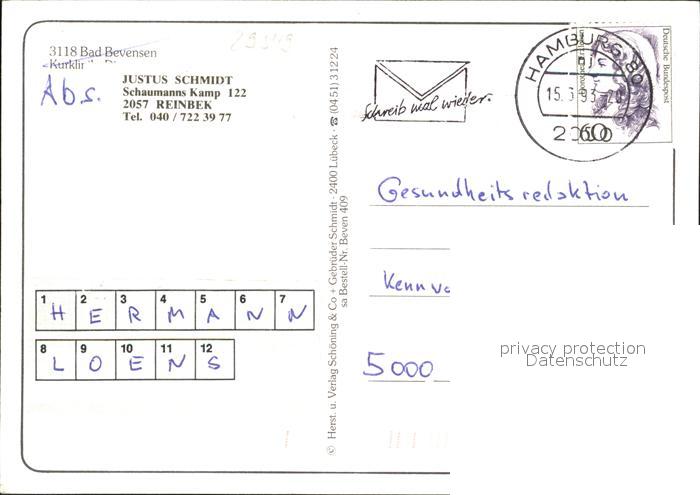 29549
3118 Bad Bevensen
Abs.
JUSTUS SCHMIDT
Schaumanns Kamp 122
2057 REINBEK
Tel. 040 / 722 39 77
Schreib mal wieder.
HAMBURG 80
15.3.93-20
2050
60
Deutsche Bundespost
Gesundheitsredaktion
5000
1 2 3 4 5 6 7
H E R M A N N
8 9 10 11 12
L O E N S
© Herst. u. Verlag Schöning & Co + Gebrüder Schmidt · 2400 Lübeck · ☎ (0451) 31224
sa Bestell-Nr. Beven 409
privacy protection
Datenschutz